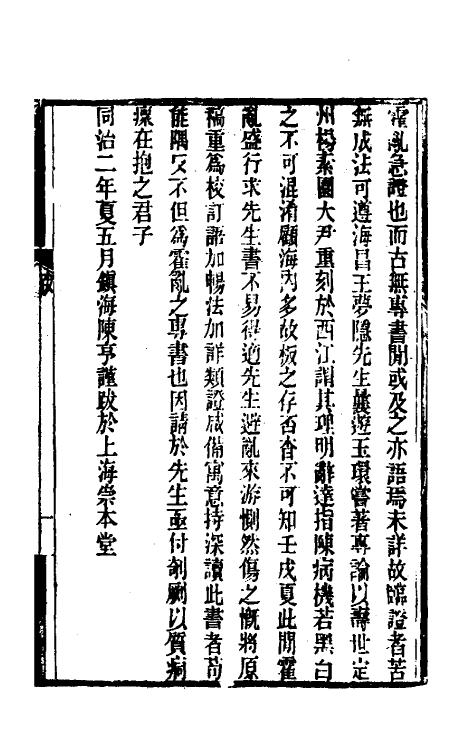 霍亂急證也而古無專書間或及之亦語焉未詳故臨證者苦
無成法可遵海昌王夢隱先生曩遊玉環嘗著專論以壽世定
州楊素園大尹重刻於西江謂其理明辭達指陳病機若黑白
之不可混淆顧海內多故板之存否杳不可知壬戌夏此間霍
亂盛行求先生書不易得適先生避亂來游惻然傷之慨將原
稿重爲校訂語加暢法加詳類證咸備寓意特深讀此書者苟
能隅反不但爲霍亂之專書也因請於先生亟付剞劂以質痌
瘝在抱之君子
同治二年夏五月鎭海陳亨謹跋於上海崇本堂
跋